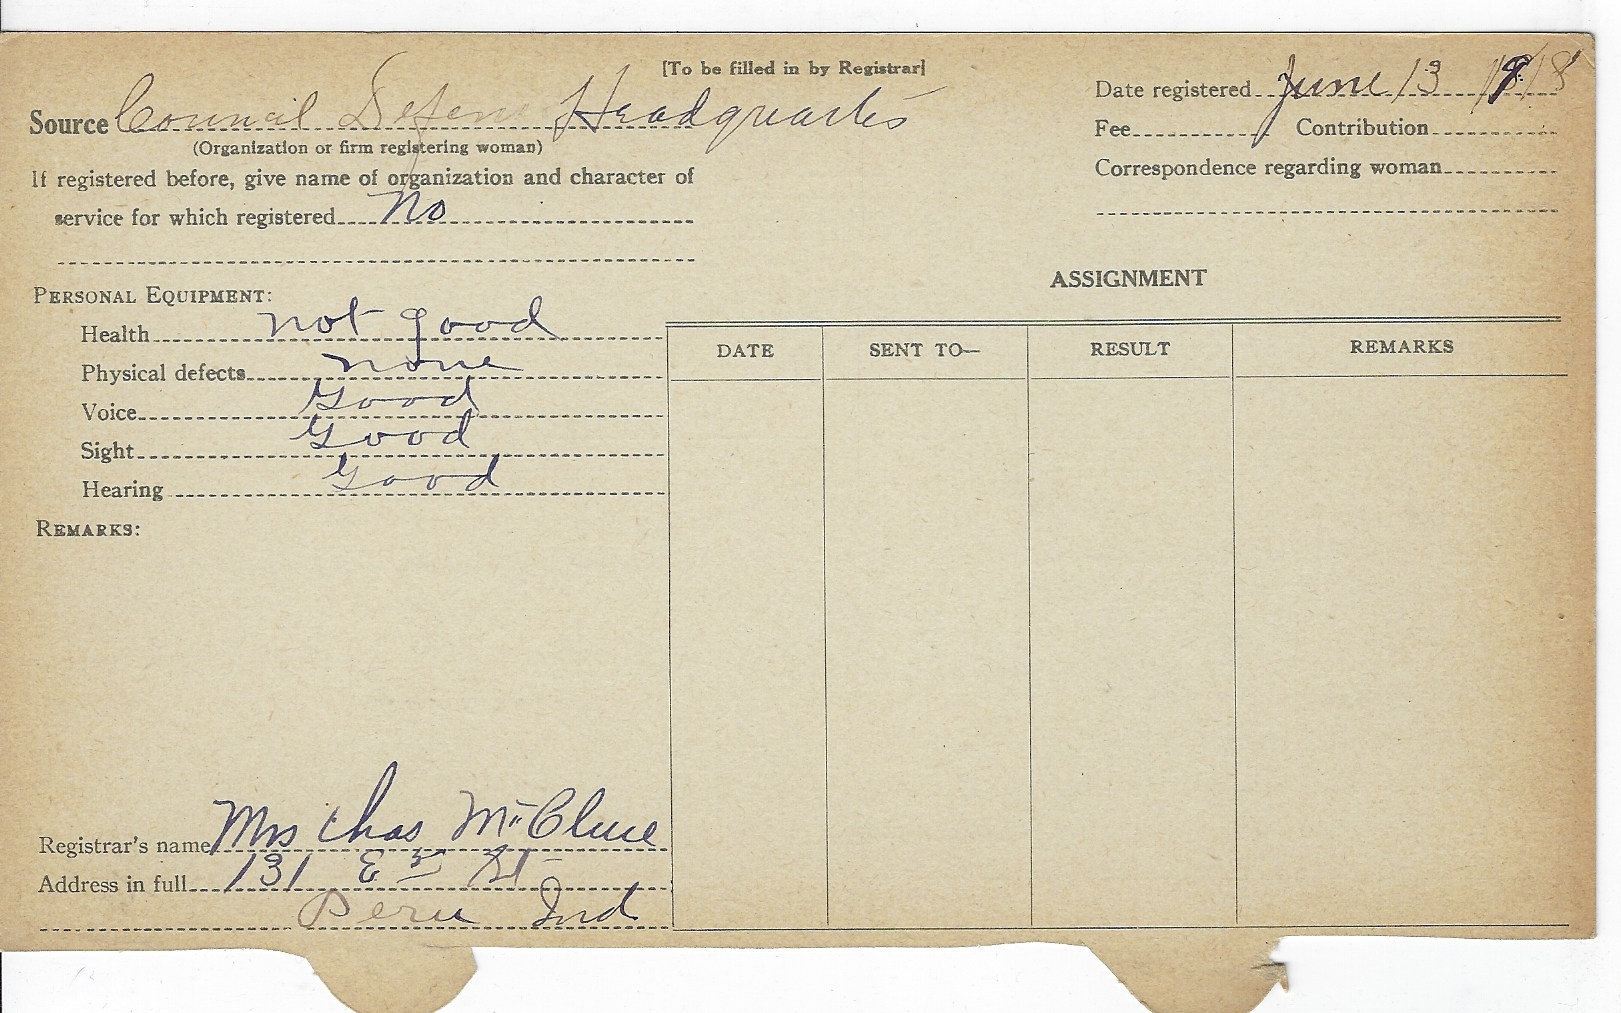 [To be filled in by Registrar]
Source Council Defens Headquarters
(Organization or firm registering woman)
If registered before, give name of organization and character of
service for which registered No
Date registered June 13 1918
Fee Contribution
Correspondence regarding woman
PERSONAL EQUIPMENT:
Health not good
Physical defects none
Voice Good
Sight Good
Hearing Good
REMARKS:
ASSIGNMENT
DATE SENT TO— RESULT REMARKS
Registrar's name Mrs Chas McClure
Address in full 131 E 3 St
Peru Ind